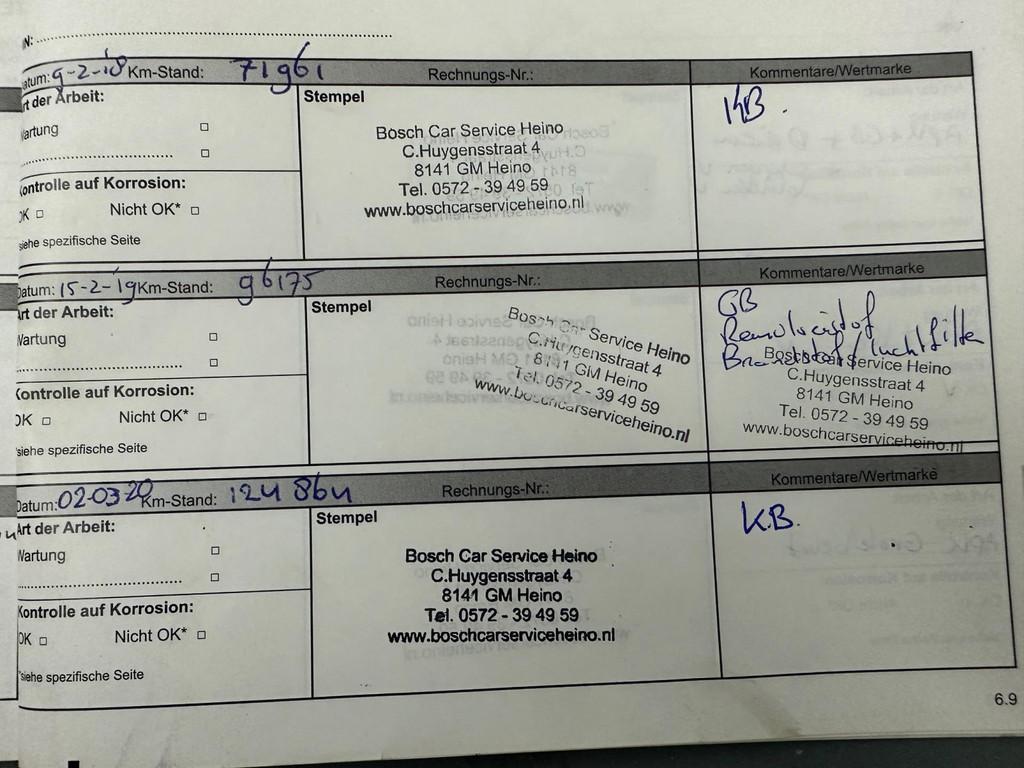 N:
Datum: 9-2-'18 Km-Stand: 71961 Rechnungs-Nr.: Kommentare/Wertmarke
Art der Arbeit: Stempel
KB.
Wartung
Bosch Car Service Heino
C.Huygensstraat 4
8141 GM Heino
Tel. 0572 - 39 49 59
www.boschcarserviceheino.nl
Kontrolle auf Korrosion:
OK Nicht OK*
*siehe spezifische Seite
Datum: 15-2-'19 Km-Stand: 96175 Rechnungs-Nr.: Kommentare/Wertmarke
Art der Arbeit: Stempel
GB
Remvloeistof
Brandstof / luchtfilter
Wartung
Bosch Car Service Heino
C.Huygensstraat 4
8141 GM Heino
Tel. 0572 - 39 49 59
www.boschcarserviceheino.nl
Bosch Car Service Heino
C.Huygensstraat 4
8141 GM Heino
Tel. 0572 - 39 49 59
www.boschcarserviceheino.nl
Kontrolle auf Korrosion:
OK Nicht OK*
*siehe spezifische Seite
Datum: 02-03-20 Km-Stand: 124864 Rechnungs-Nr.: Kommentare/Wertmarke
Art der Arbeit: Stempel
KB.
Wartung
Bosch Car Service Heino
C.Huygensstraat 4
8141 GM Heino
Tel. 0572 - 39 49 59
www.boschcarserviceheino.nl
Kontrolle auf Korrosion:
OK Nicht OK*
*siehe spezifische Seite
6.9